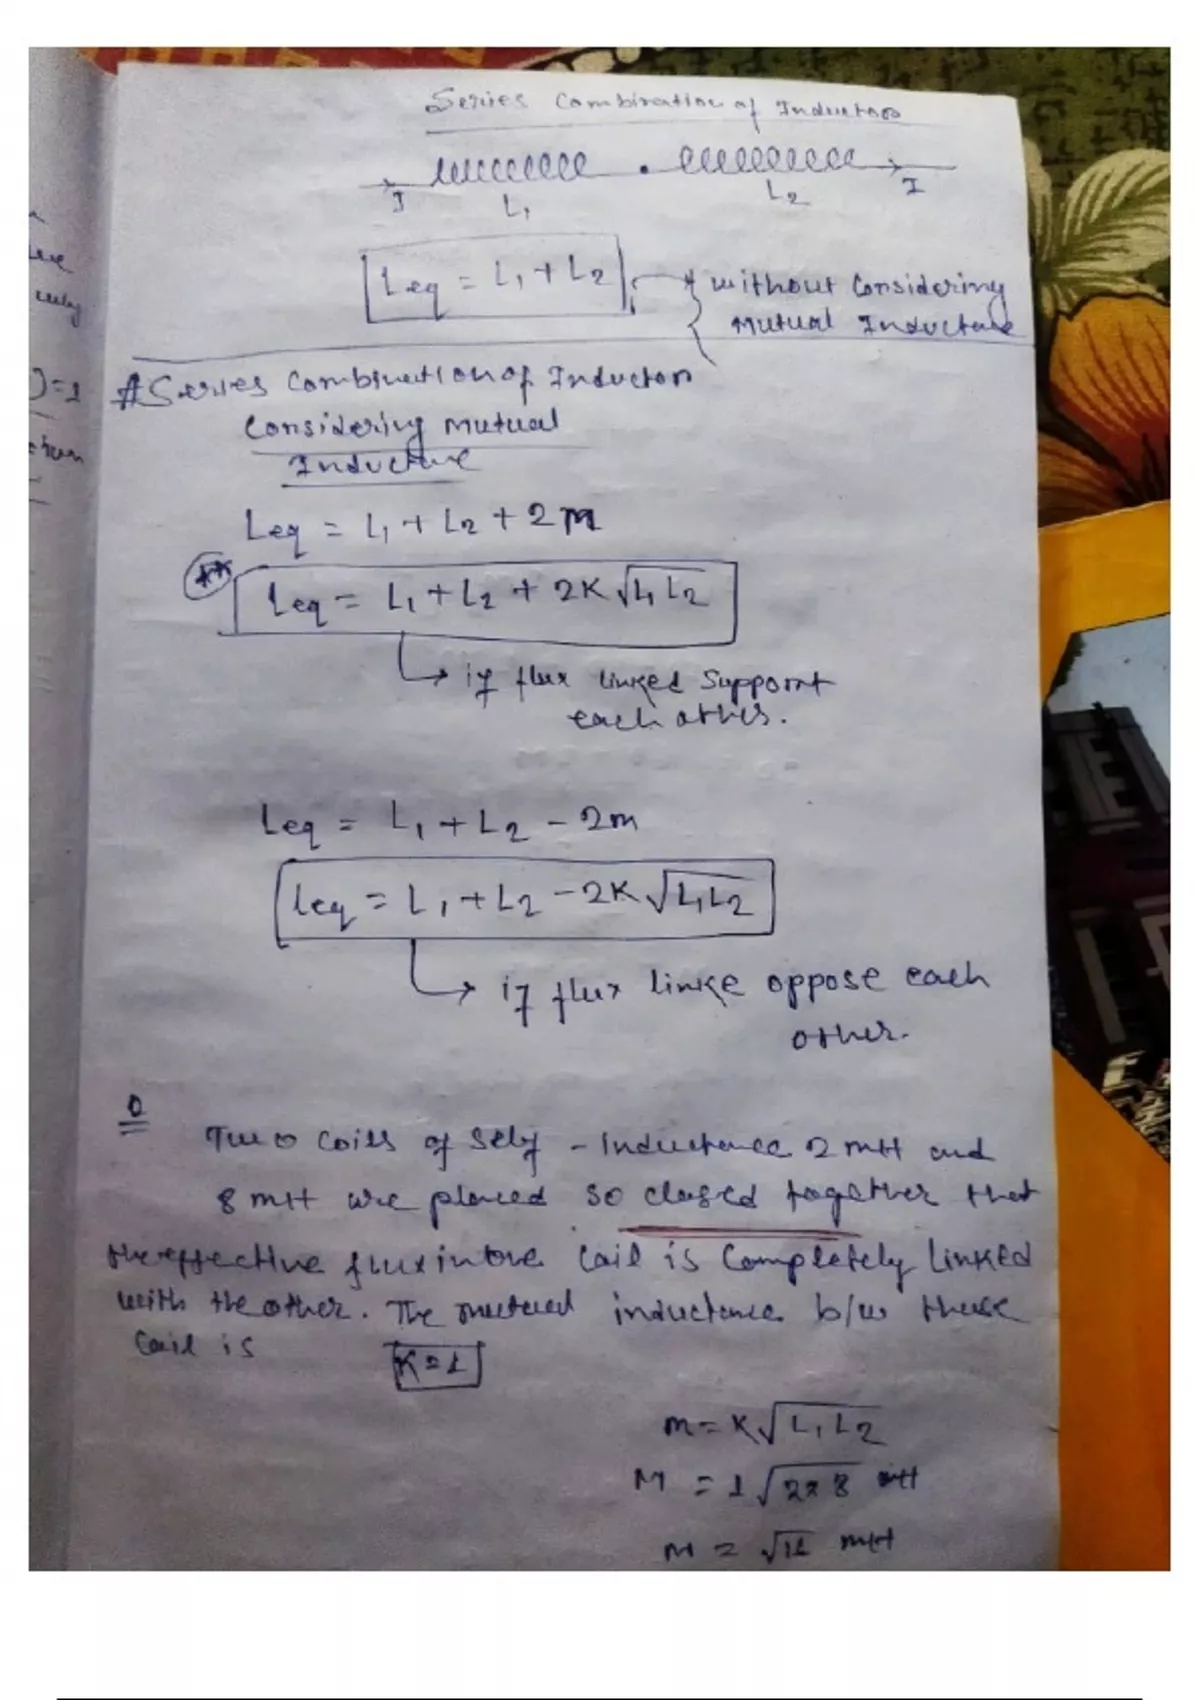 Series Combination of Inductors
I L1 L2 I
Leq = L1 + L2 without Considering
Mutual Inductance
# Series Combination of Inductors
Considering Mutual
Inductance
Leq = L1 + L2 + 2M
** Leq = L1 + L2 + 2K √L1 L2
→ if flux linked Support
each other.
Leq = L1 + L2 - 2m
Leq = L1 + L2 - 2K √L1L2
→ if flux linke oppose each
other.
Q
Two coils of Self - Inductance 2 mH and
8 mH are placed so closed together that
the effective flux in one Coil is Completely Linked
with the other. The mutual inductance b/w these
Coil is K=1
M = K√L1L2
M = 1√2x8 mH
M = √16 mH